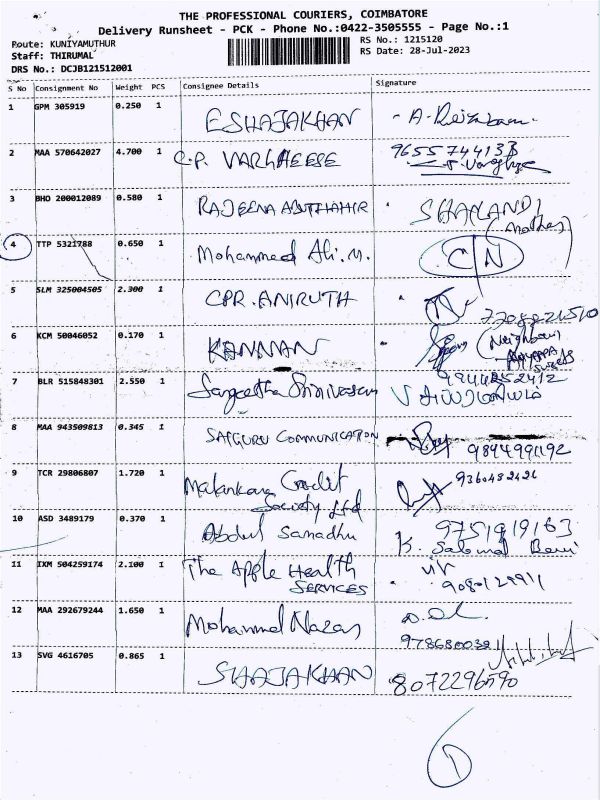 THE PROFESSIONAL COURIERS, COIMBATORE
Delivery Runsheet - PCK - Phone No.:0422-3505555 - Page No.:1
Route: KUNIYAMUTHUR
RS No.: 1215120
Staff: THIRUMAL
RS Date: 28-Jul-2023
DRS No.: DCJB121512001
S No Consignment No Weight PCS Consignee Details Signature
1 GPM 305919 0.250 1 ESHAJAKHAN
2 MAA 570642027 4.700 1 C.P. VARGHEESE
3 BHO 200012089 0.580 1 RAJEENA ABUTHAHIR
4 TTP 5321788 0.650 1 Mohammed Ali.M. C/N
5 SLM 325004505 2.300 1 CPR.ANIRUTH
6 KCM 50046052 0.170 1 KANNAN (Neighbour
7 BLR 515848301 2.550 1 Sangeetha Srinivasan
8 MAA 943509813 0.345 1 SATGURU COMMUNICATION 9894991192
9 TCR 29806807 1.720 1 Malankara Credit Society Ltd 9360482426
10 ASD 3489179 0.370 1 Abdul Samadhu 9751919163
11 IXM 504259174 2.100 1 The Apple Health
SERVICES
12 MAA 292679244 1.650 1 Mohammed Nazar
13 SVG 4616705 0.865 1 SHAJAKHAN 8072296590